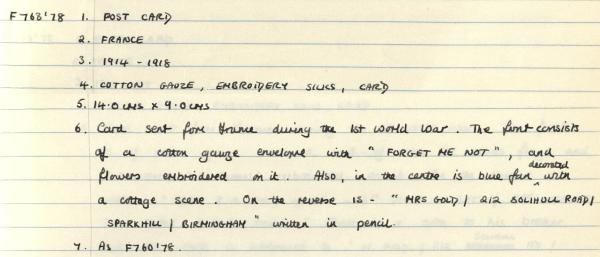 F763'78 1. POST CARD
2. FRANCE
3. 1914 - 1918
4. COTTON GAUZE, EMBROIDERY SILKS, CARD
5. 14.0 cms x 9.0 cms
6. Card sent form France during the 1st World War. The front consists
of a cotton gauze envelope with "FORGET ME NOT", and
flowers embroidered on it. Also, in the centre is blue fan decorated with
a cottage scene. On the reverse is - "MRS GOLD / 212 SOLIHULL ROAD /
SPARKHILL / BIRMINGHAM" written in pencil.
7. As F760'78.